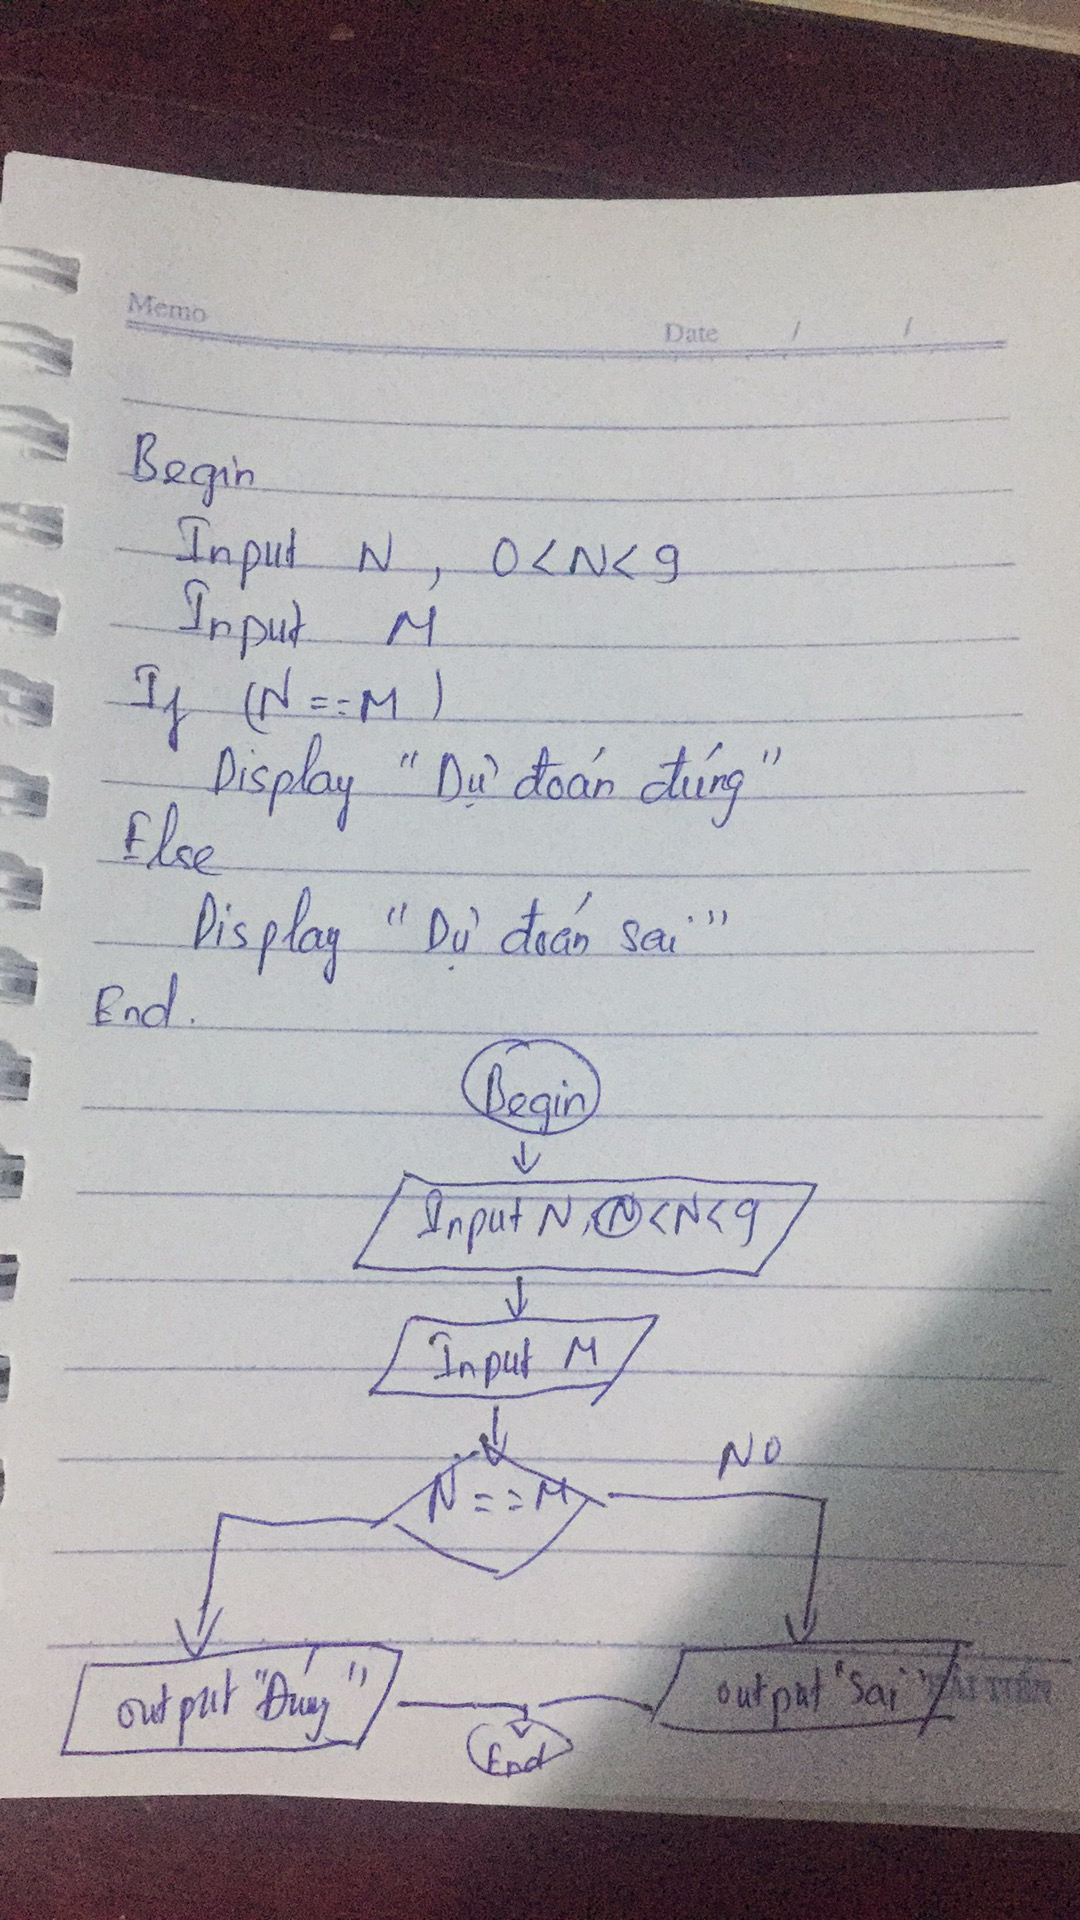 Memo
Date / /
Begin
Input N, 0<N<9
Input M
If (N==M)
Display "Dự đoán đúng"
Else
Display "Dự đoán sai"
End.
Begin
Input N, <N<9
Input M
N==M
NO
output "Đúng"
output "Sai"
End